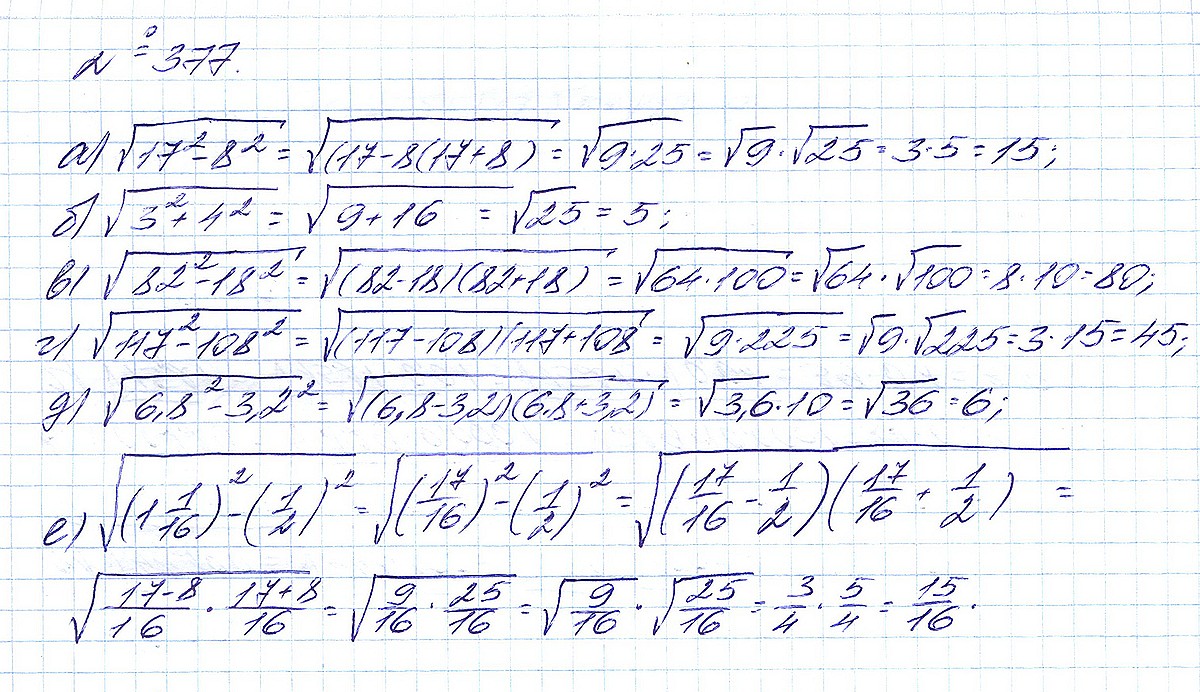 № 377.
а) √(17² - 8²) = √((17 - 8(17 + 8) = √(9·25) = √9 · √25 = 3·5 = 15;
б) √(3² + 4²) = √(9 + 16) = √25 = 5;
в) √(82² - 18²) = √((82 - 18)(82 + 18)) = √(64·100) = √64 · √100 = 8·10 = 80;
г) √(117² - 108²) = √((117 - 108)(117 + 108 = √(9·225) = √9 · √225 = 3·15 = 45;
д) √(6,8² - 3,2²) = √((6,8 - 3,2)(6,8 + 3,2)) = √(3,6·10) = √36 = 6;
е) √((1 1/16)² - (1/2)²) = √((17/16)² - (1/2)²) = √((17/16 - 1/2)(17/16 + 1/2)) =
√((17-8)/16 · (17+8)/16) = √(9/16 · 25/16) = √(9/16) · √(25/16) = 3/4 · 5/4 = 15/16.